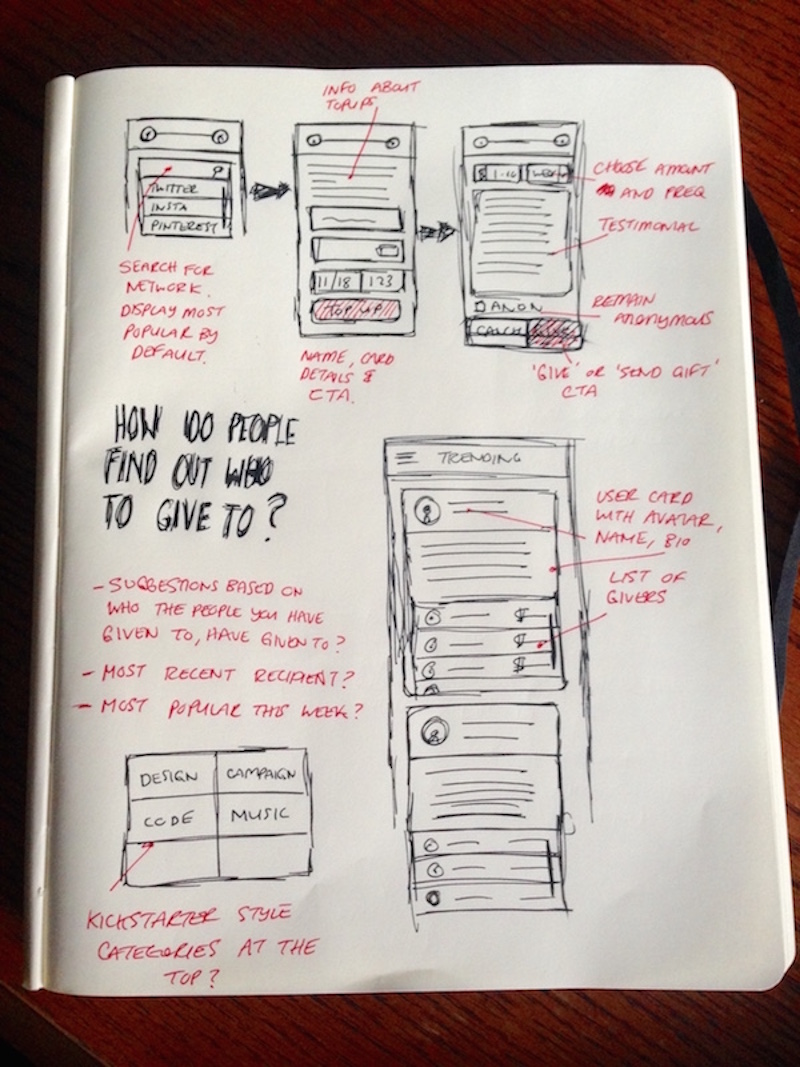 INFO ABOUT
TOPUPS
TWITTER
INSTA
PINTEREST
SEARCH FOR
NETWORK.
DISPLAY MOST
POPULAR BY
DEFAULT.
11/18 123
TOP UP
NAME, CARD
DETAILS &
CTA.
CHOOSE AMOUNT
AND FREQ
TESTIMONIAL
ANON
REMAIN
ANONYMOUS
'GIVE' OR 'SEND GIFT'
CTA
HOW DO PEOPLE
FIND OUT WHO
TO GIVE TO?
- SUGGESTIONS BASED ON
WHO THE PEOPLE YOU HAVE
GIVEN TO, HAVE GIVEN TO?
- MOST RECENT RECIPIENT?
- MOST POPULAR THIS WEEK?
DESIGN CAMPAIGN
CODE MUSIC
KICKSTARTER STYLE
CATEGORIES AT THE
TOP?
TRENDING
$
$
$
USER CARD
WITH AVATAR,
NAME, BIO
LIST OF
GIVERS